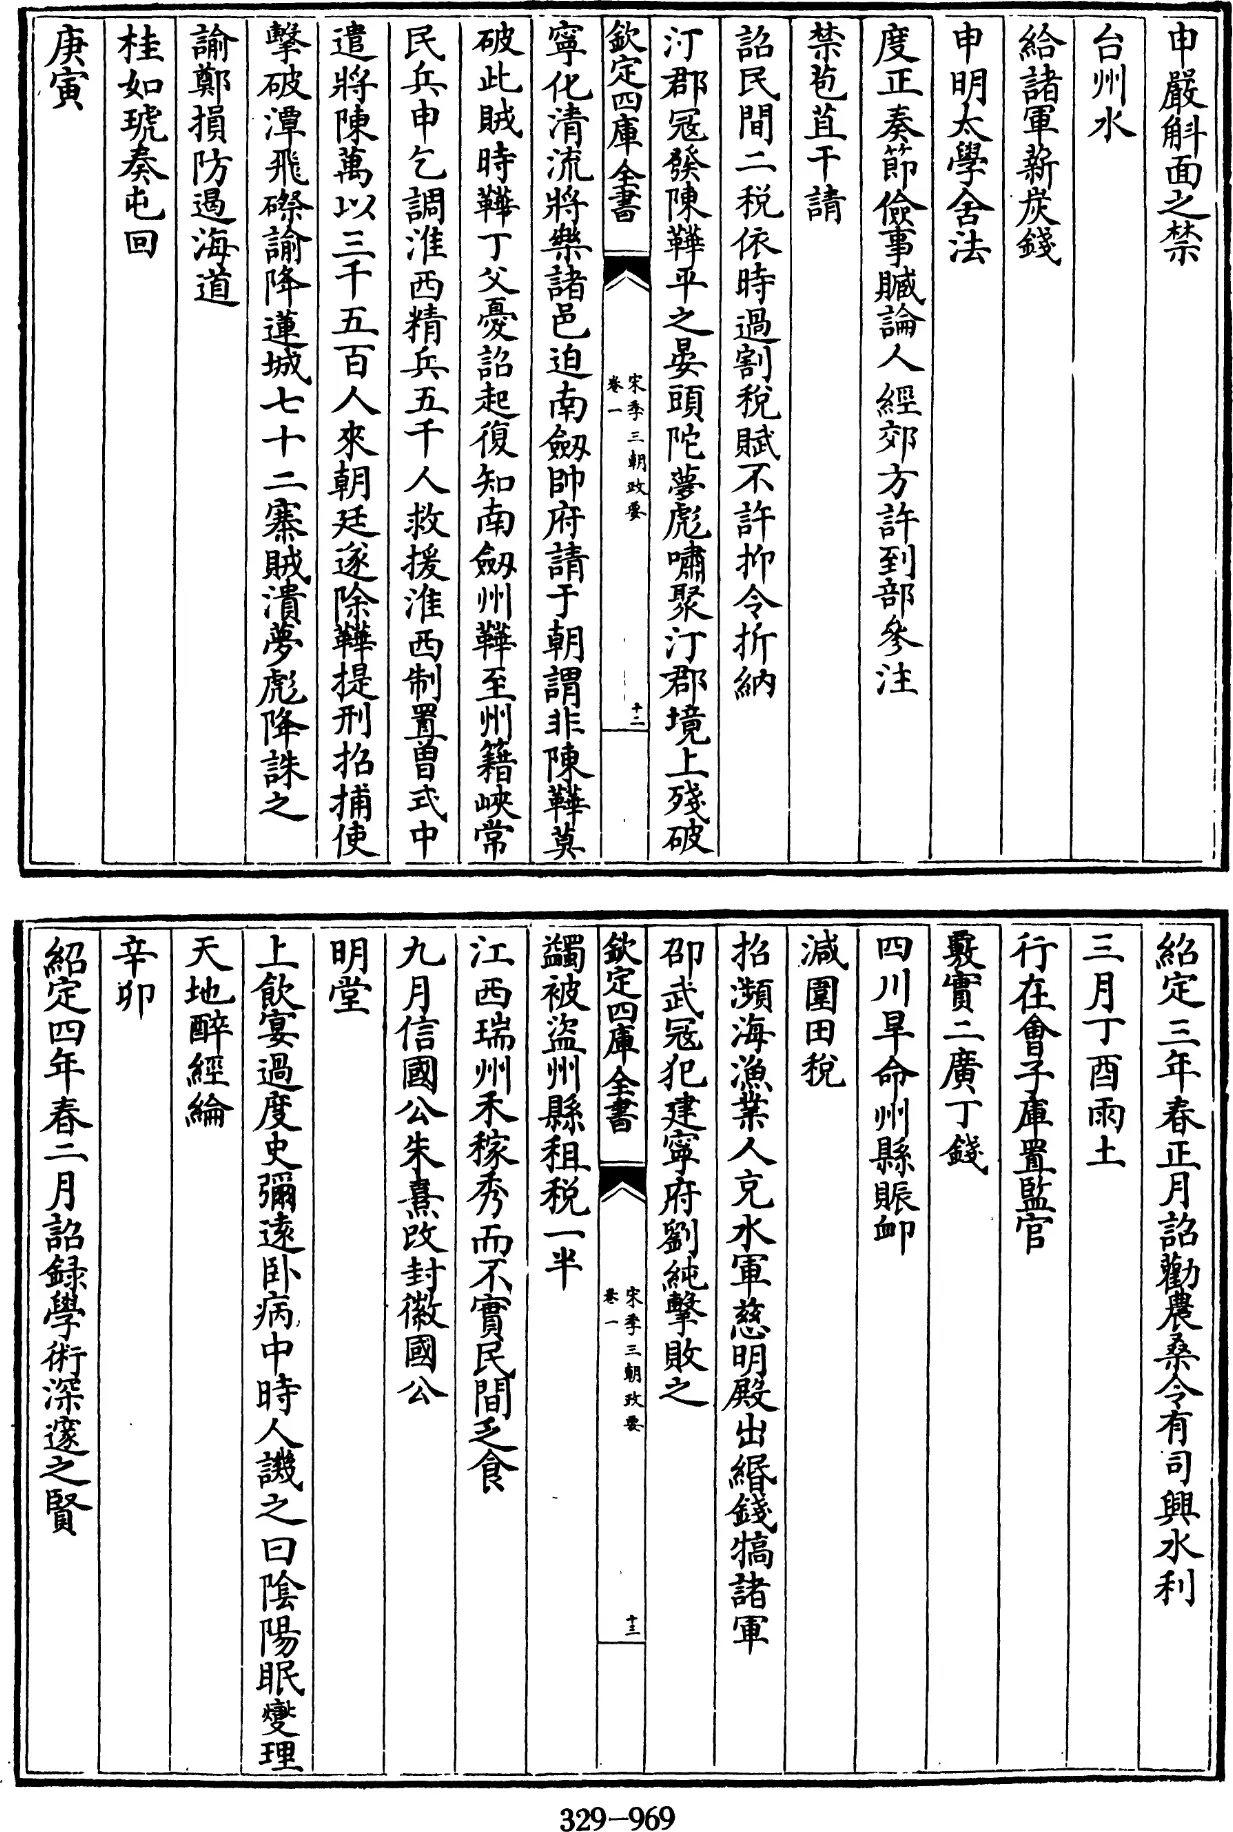 申嚴斛面之禁
台州水
給諸軍薪炭錢
申明太學舍法
度正奏節儉事贓論人經郊方許到部參注
禁苞苴干請
詔民間二稅依時過割稅賦不許抑令折納
汀郡冦發陳韡平之晏頭陀夢彪嘯聚汀郡境上殘破
欽定四庫全書
宋季三朝政要
卷一
十二
寧化清流將樂諸邑迫南劒帥府請于朝謂非陳韡莫
破此賊時韡丁父憂詔起復知南劒州韡至州籍峽常
民兵申乞調淮西精兵五千人救援淮西制置曾式中
遣將陳萬以三千五百人來朝廷遂除韡提刑招捕使
擊破潭飛磜諭降蓮城七十二寨賊潰夢彪降誅之
諭鄭損防遏海道
桂如琥奏屯回
庚寅
紹定三年春正月詔勸農桑令有司興水利
三月丁酉雨土
行在會子庫置監官
覈實二廣丁錢
四川旱命州縣賑衈
減圍田稅
招瀕海漁業人充水軍慈明殿出緡錢犒諸軍
邵武冦犯建寧府劉純擊敗之
欽定四庫全書
宋季三朝政要
卷一
十三
蠲被盜州縣租稅一半
江西瑞州禾稼秀而不實民間乏食
九月信國公朱熹改封徽國公
明堂
上飲宴過度史彌遠卧病中時人譏之曰陰陽眠爕理
天地醉經綸
辛卯
紹定四年春二月詔録學術深邃之賢
329-969